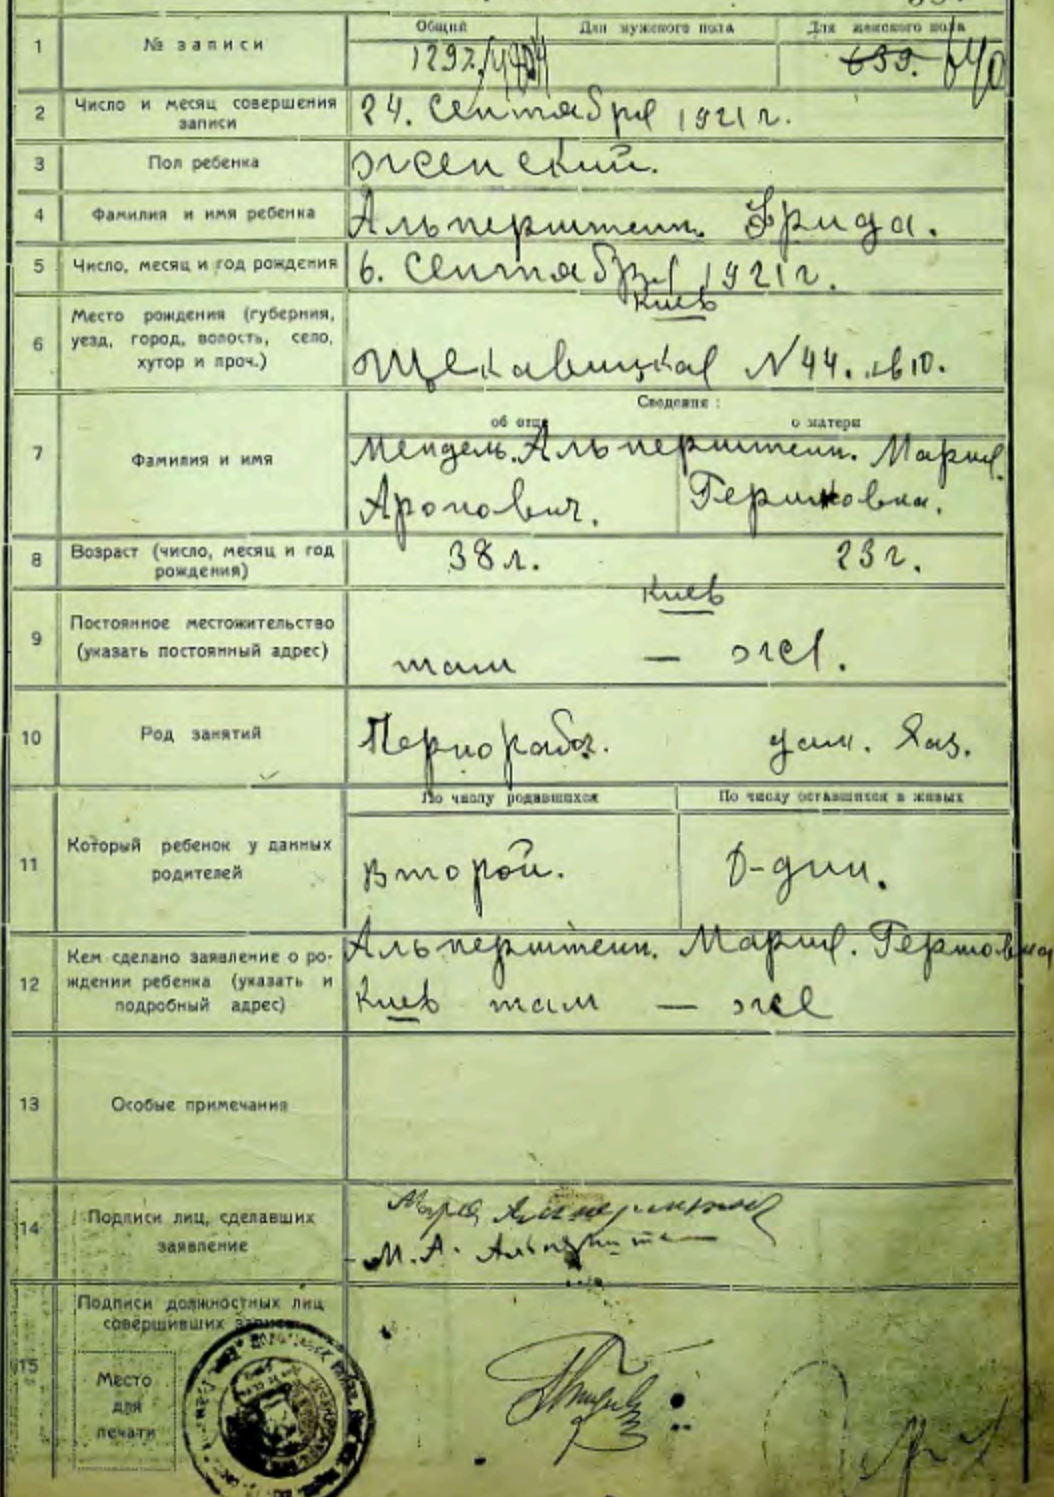 1 № записи Общий Для мужского пола Для женского пола
1297. 639. 640
2 Число и месяц совершения
записи
24. Сентября 1921 г.
3 Пол ребенка женский.
4 Фамилия и имя ребенка Альперштейн. Фрида.
5 Число, месяц и год рождения 6. Сентября 1921 г.
6 Место рождения (губерния,
уезд, город, волость, село,
хутор и проч.)
Киев
Щекавицкая N 44. кв 10.
7 Фамилия и имя
Сведения:
об отце о матери
Мендель. Альперштейн. Мария.
Аронович. Гершковна.
8 Возраст (число, месяц и год
рождения)
38 л. 23 г.
9 Постоянное местожительство
(указать постоянный адрес)
Киев
там — же.
10 Род занятий дом. хоз.
11 Который ребенок у данных
родителей
По числу родившихся По числу оставшихся в живых
Второй. О-дин.
12 Кем сделано заявление о ро-
ждении ребенка (указать и
подробный адрес)
Альперштейн. Мария. Гершовна
Киев там — же
13 Особые примечания
14 Подписи лиц, сделавших
заявление
М. А.
15 Подписи должностных лиц
совершивших запись
Место
для
печати